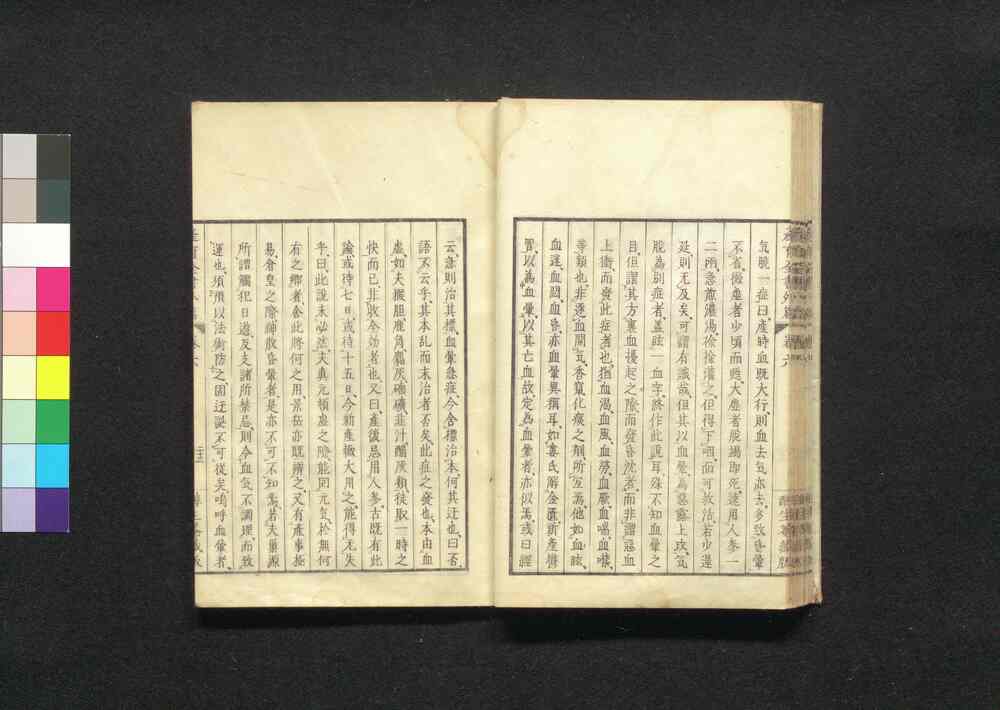 氣脫一症曰產時血既大行則血去氣亦去多致昏暈
不省微虛者少頃而甦大虛者脫竭即死速用人參一
二兩急煎濃湯徐徐灌之但得下咽即可救活若少遲
延則无及矣可謂有識哉但其以血暈為惡露上攻氣
脫為別症者蓋眩一血字終作此說耳殊不知血暈之
目但謂其方裏血擾起之際而發昏沈者而非謂惡血
上衝而發此症者也猶血渴血風血勞血厥血喘血喉
等類也非逐血開氣香竄化痰之劑所宜焉他如血眩
血迷血悶血昏亦血暈異稱耳如婁氏解金匱新產鬱
冒以為血暈以其亡血故定為血暈者亦似焉或曰經
云急則治其標血暈急症今舍標治本何其迂也曰否
語不云乎其本乱而末治者否矣此症之發也本由血
虛如夫猴胆鹿角麝灰礞礦韭汁醋炭類徒取一時之
快而已非收全効者也又曰產後忌用人參古既有此
論或待七日或待十五日今新產輙大用之能得无失
乎曰此說未必法夫真元頓憊之際能回元氣於無何
有之鄉者舍此將何之用景岳亦既辨之又有產事極
易倉皇之際神散昏暈者是亦不可不知焉若夫巢源
所謂觸犯日遊反支諸所禁忌則令血氣不調理而致
運也須預以法術防之固迂誕不可從矣嗚呼血暈者